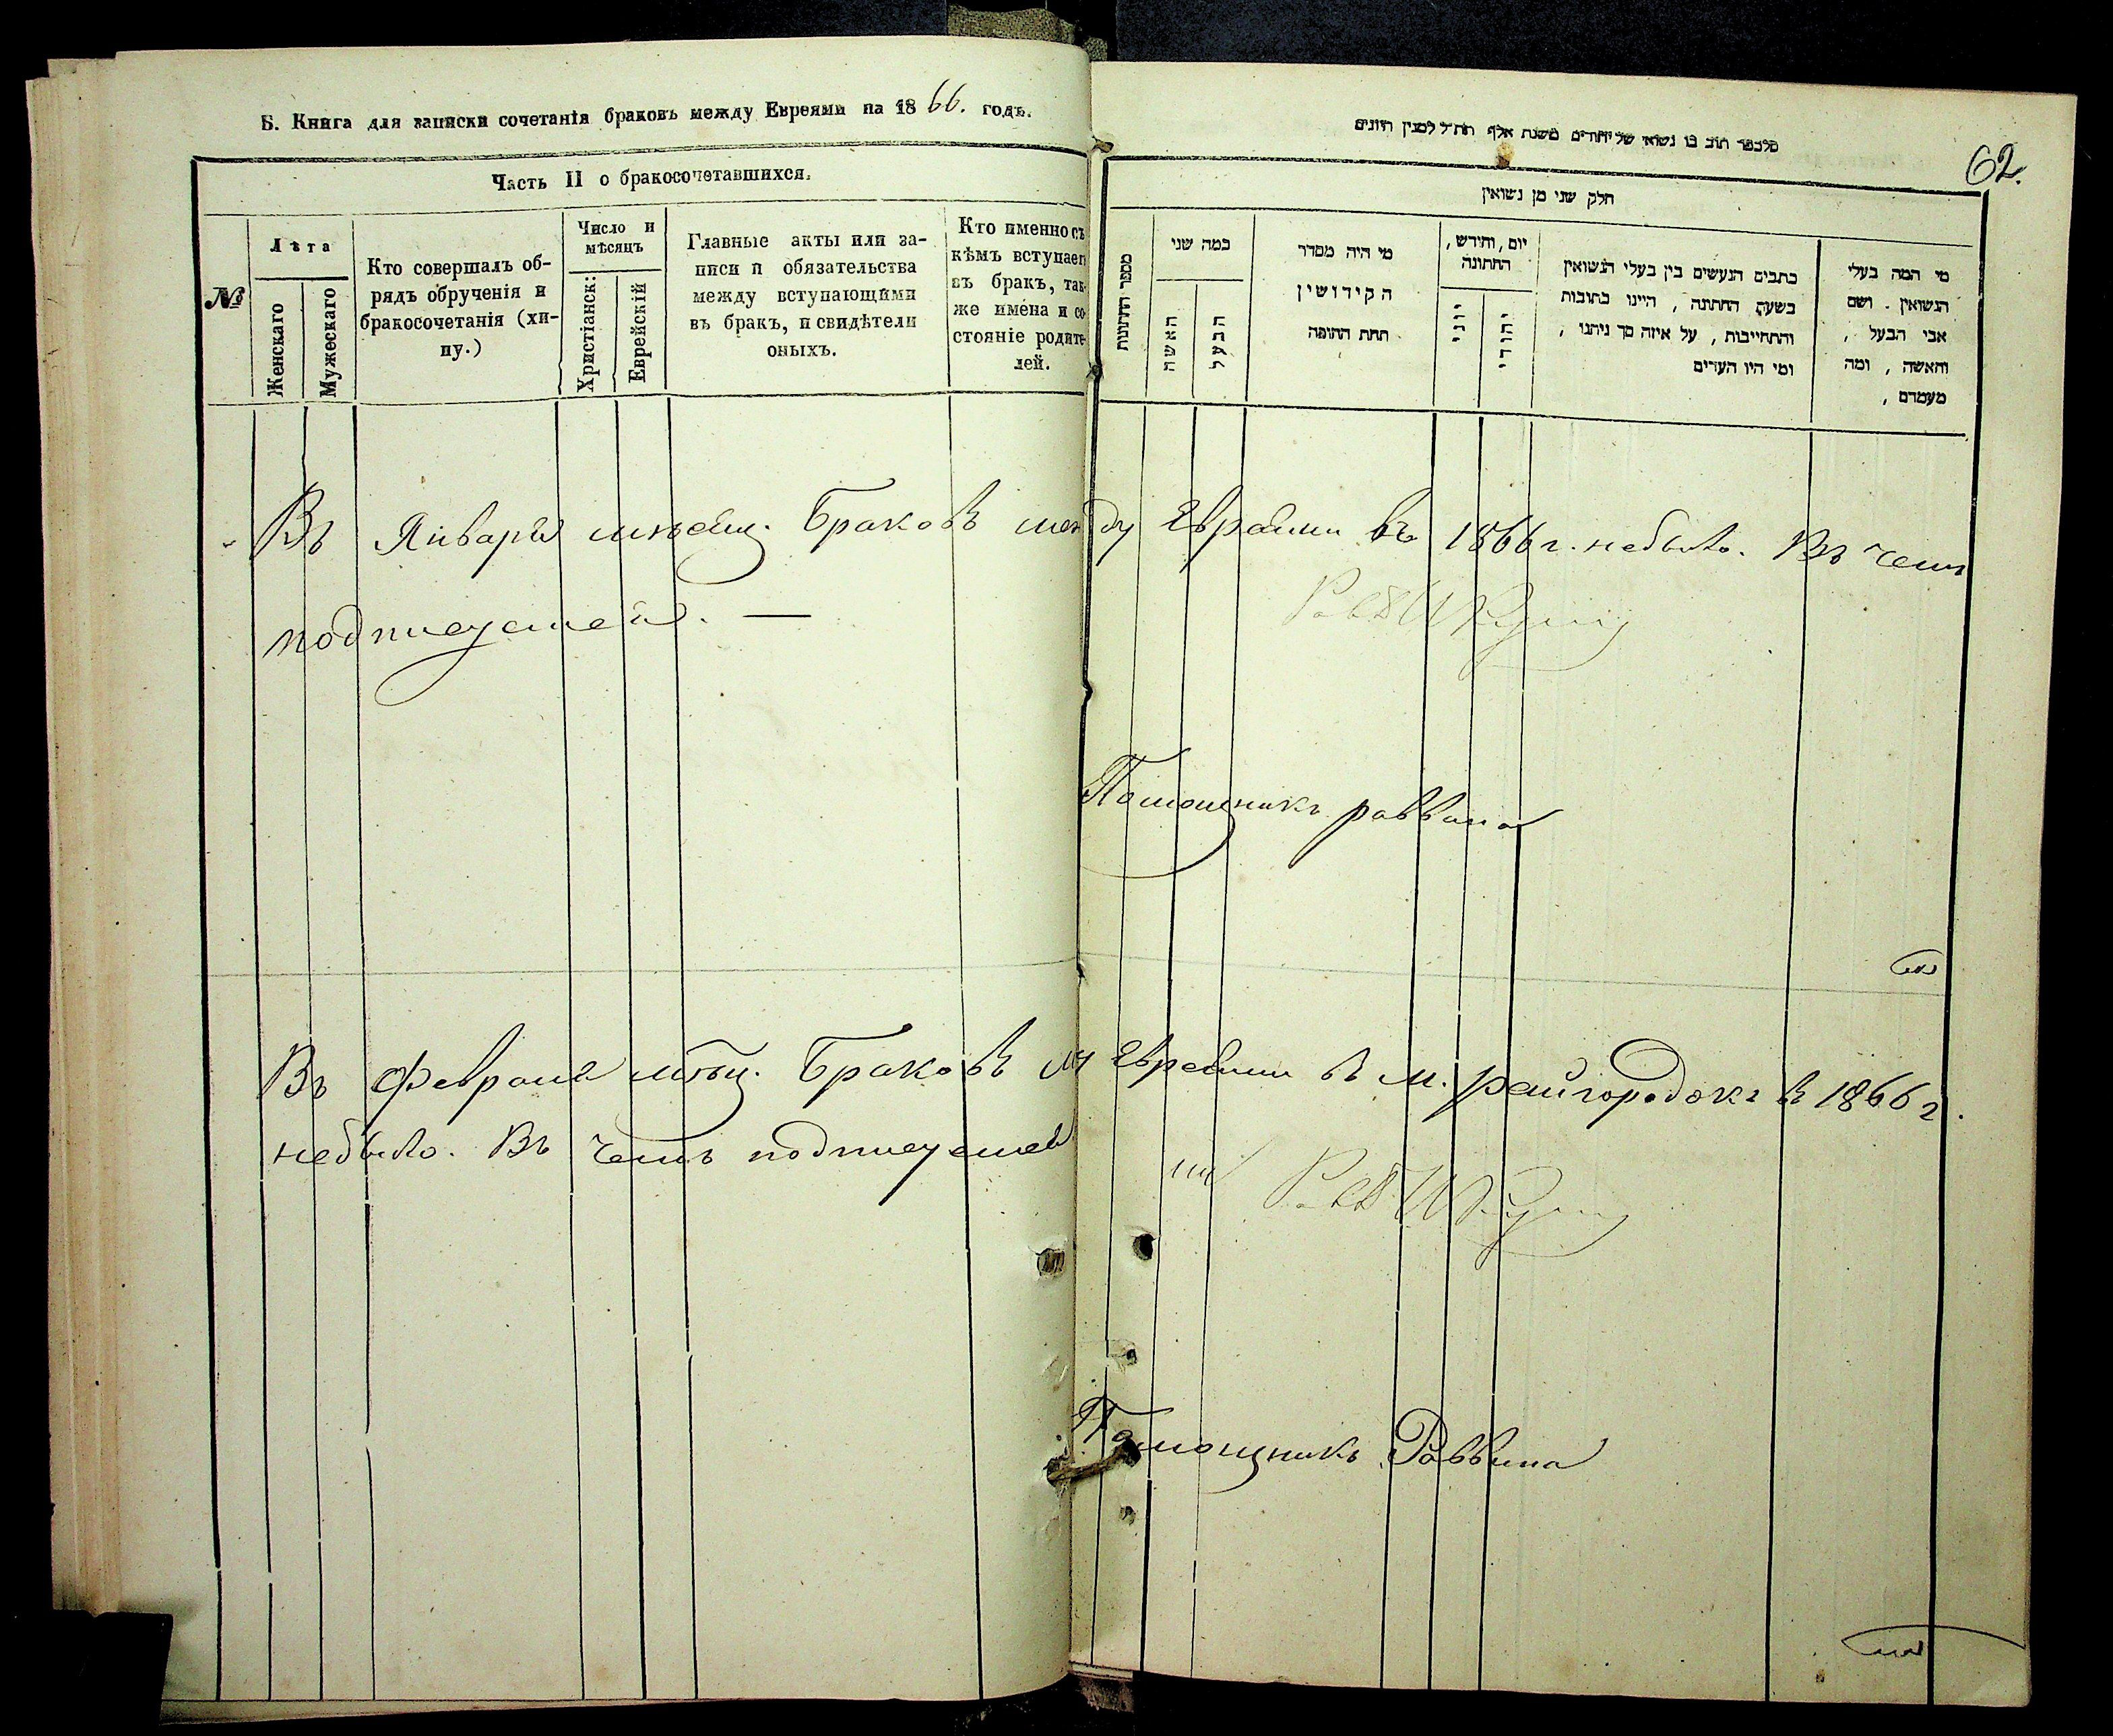 Б. Книга для записки сочетанія браковъ между Евреями на 1866. годъ.
Часть II о бракосочетавшихся.
№
Лѣта
Женскаго
Мужескаго
Кто совершалъ об-
рядъ обрученія и
бракосочетанія (хи-
пу.)
Число и
мѣсяцъ
Христіанск:
Еврейскій
Главные акты или за-
писи и обязательства
между вступающими
въ бракъ, и свидѣтели
оныхъ.
Кто именно съ
кѣмъ вступаетъ
въ бракъ, так-
же имена и со-
стояніе родите-
лей.
62.
חלק שני מן נשואין
מספר החתונות
כמה שני
האשה
הבעל
מי היה מסדר
הקידושין
תחת החופה
יום, וחודש,
החתונה
יוני
יהודי
כתבים הנעשים בין בעלי הנשואין
בשעת החתונה, היינו כתובות
והתחייבות, על איזה סך ניתנו,
ומי היו העדים
מי המה בעלי
הנשואין. ושם
אבי הבעל,
והאשה, ומה
מעמדם,
Въ Январѣ мѣсяц. Браковъ между Евреями въ 1866 г. небыло. Въ чемъ
подписуемся. —
Помощникъ раввина
Въ Февралѣ мѣсяц. Браковъ м Евреями в м. Райгородокъ в 1866 г.
небыло. Въ чемъ подписуемся
Помощникъ Раввина